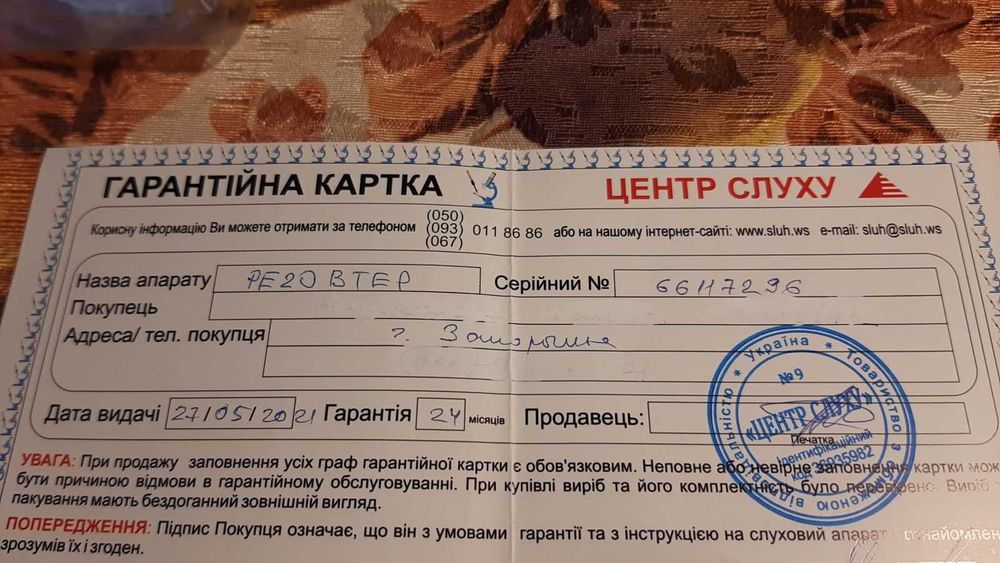 ГАРАНТІЙНА КАРТКА ЦЕНТР СЛУХУ
Корисну інформацію Ви можете отримати за телефоном (050) (093) (067) 011 86 86 або на нашому інтернет-сайті: www.sluh.ws e-mail: sluh@sluh.ws
Назва апарату PE20 BTEP Серійний № 66117296
Покупець
Адреса/ тел. покупця г. Запорожье
Дата видачі 27/05/2021 Гарантія 24 місяців Продавець:
Україна * Товариство з обмеженою відповідальністю *
№9
«ЦЕНТР СЛУХУ»
Печатка
Ідентифікаційний
код 36925982
УВАГА: При продажу заповнення усіх граф гарантійної картки є обов'язковим. Неповне або невірне заповнення картки мож
бути причиною відмови в гарантійному обслуговуванні. При купівлі виріб та його комплектність було перевірено. Виріб
пакування мають бездоганний зовнішній вигляд.
ПОПЕРЕДЖЕННЯ: Підпис Покупця означає, що він з умовами гарантії та з інструкцією на слуховий апарат ознайомлен
зрозумів їх і згоден.